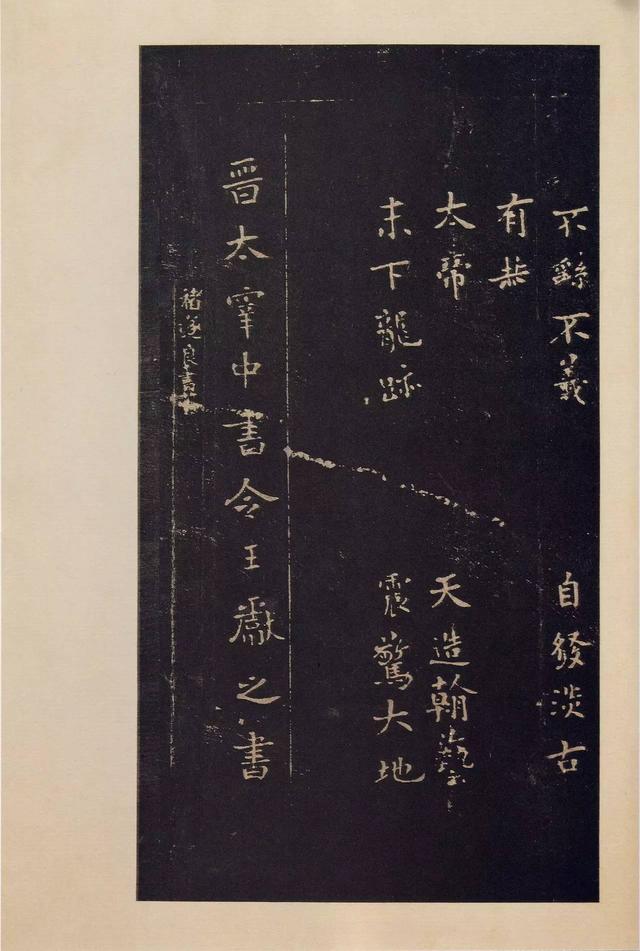 不繇不羲 自發淡古
有恭
太帝 天造翰藝
未下龍跡 震驚大地
晋太宰中書令王獻之書
褚遂良書